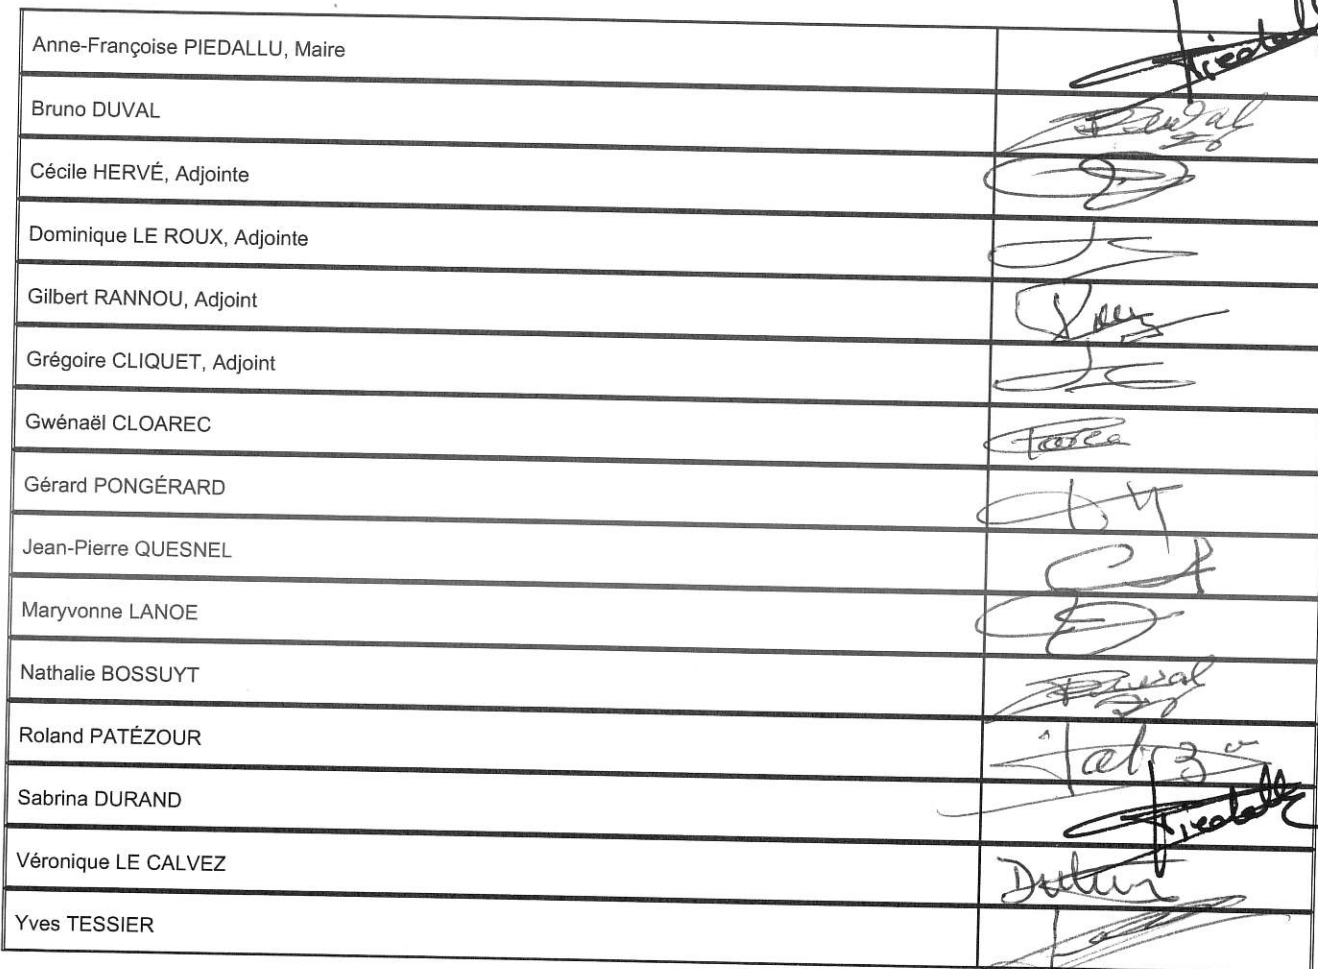 Anne-Françoise PIEDALLU, Maire
Piedallu
Bruno DUVAL
Duval
Cécile HERVÉ, Adjointe
Dominique LE ROUX, Adjointe
Gilbert RANNOU, Adjoint
Grégoire CLIQUET, Adjoint
Gwénaël CLOAREC
Gérard PONGÉRARD
Jean-Pierre QUESNEL
Maryvonne LANOE
Nathalie BOSSUYT
Duval
Roland PATÉZOUR
Sabrina DURAND
Piedallu
Véronique LE CALVEZ
Yves TESSIER